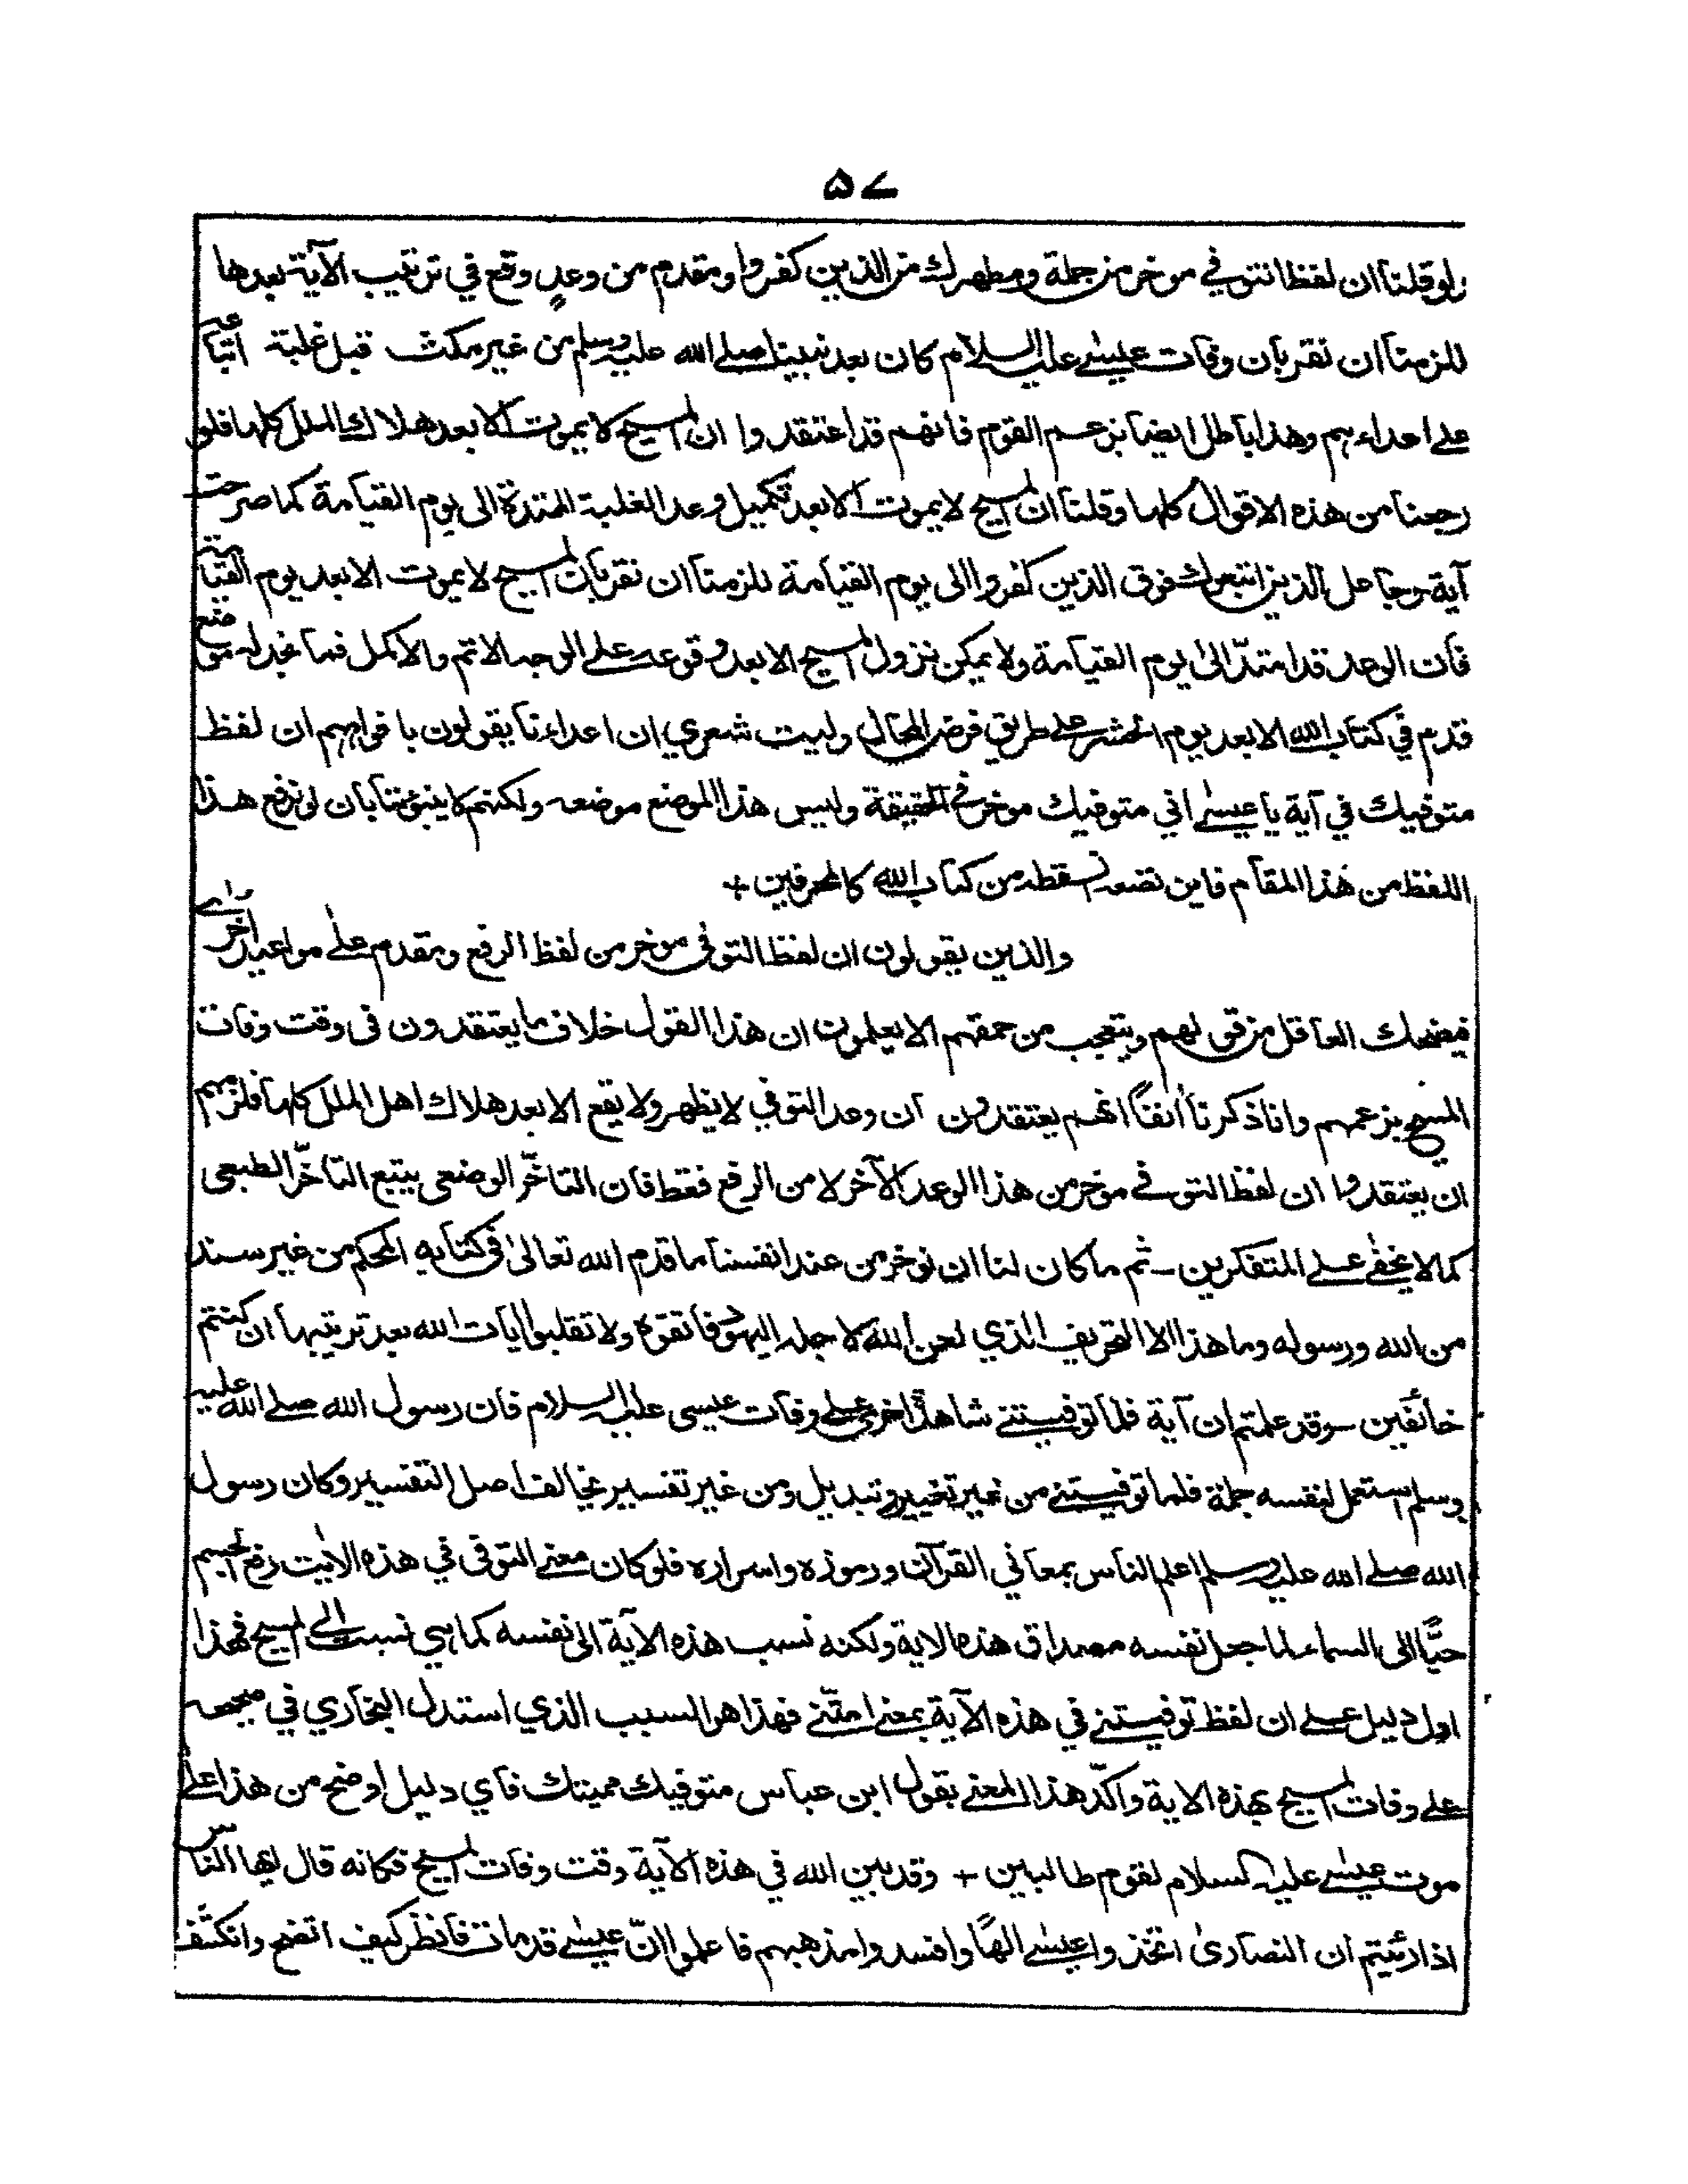 ۵۷
ولو قلنا ان لفظ التوفي موخر من جملة ومطهرك من الذين كفروا ومقدم من وعدٍ وقع في ترتيب الآية بعدها
للزمنا ان نقر بان وفات عيسى عليه السلام كان بعد نبينا صلى الله عليه وسلم من غير مكث قبل غلبة اتباعه
على اعداءهم وهذا باطل ايضا بزعم القوم فانهم قد اعتقدوا ان المسيح لا يموت الا بعد هلاك الملل كلها فلو
رجعنا من هذه الاقوال كلها وقلنا ان المسيح لا يموت الا بعد تكميل وعد الغلبة الممتدة الى يوم القيامة كما صرحت
آية وجاعل الذين اتبعوك فوق الذين كفروا الى يوم القيامة للزمنا ان نقر بان المسيح لا يموت الا بعد يوم القيامة
فان الوعد قد امتدّ الىٰ يوم القيامة ولا يمكن نزول المسيح الا بعد وقوعه على الوجه الاتم والاكمل فما نجد له موضع
قدم في كتاب الله الا بعد يوم الحشر على طريق فرض المحال وليت شعري ان اعداءنا يقولون بافواههم ان لفظ
متوفيك في آية يا عيسىٰ اني متوفيك موخر في الحقيقة وليس هذا الموضع موضعه ولكنهم لا ينبؤننا بان لو نرفع هذا
اللفظ من هذا المقام فاين نضعه انسقطه من كتاب الله كالمحرفين +
والذين يقولون ان لفظ التوفى موخر من لفظ الرفع ومقدم على مواعيد اخرى
فيضحك العاقل من قولهم ويتعجب من حمقهم الا يعلمون ان هذا القول خلاف ما يعتقدون فى وقت وفات
المسيح بزعمهم وانا ذكرنا اٰنفاً انهم يعتقدون ان وعد التوفي لا يظهر ولا يقع الا بعد هلاك اهل الملل كلها فلزمهم
ان يعتقدوا ان لفظ التوفي موخر من هذا الوعد الآخر لا من الرفع فقط فان التاخّر الوضعى يتبع التاخّر الطبعى
كما لا يخفى على المتفكرين - ثم ما كان لنا ان نوخر من عند انفسنا ما قدم الله تعالىٰ فى كتابه المحكم من غير سند
من الله ورسوله وما هذا الا التحريف الذي لعن الله لاجله اليهود فاتقوه ولا تقلبوا اٰيات الله بعد ترتيبها ان كنتم
خائفين - وقد علمتم ان آية فلما توفيتني شاهدٌ اخرى على وفات عيسى عليه السلام فان رسول الله صلى الله عليه
وسلم استعمل لنفسه جملة فلما توفيتني من غير تغيير وتبديل ومن غير تفسير يخالف اصل التفسير وكان رسول
الله صلى الله عليه وسلم اعلم الناس بمعاني القرآن ورموزه واسراره فلو كان معنى التوفى في هذه الاٰيت رفع الجسم
حيًّا الى السماء لما جعل نفسه مصداق هذه الاية ولكنه نسب هذه الآية الى نفسه كما هي نسبت الى المسيح فهذا
اول دليل على ان لفظ توفيتني في هذه الآية بمعنى امتّني فهذا هو السبب الذي استدل البخاري في صحيحه
على وفات المسيح بهذه الاية واكّد هذا المعنى بقول ابن عباس متوفيك مميتك فاي دليل اوضح من هذا على
موت عيسى عليه السلام لقوم طالبين + وقد بين الله في هذه الآية وقت وفات المسيح فكانه قال ايها الناس
اذا رئيتم ان النصارىٰ اتخذوا عيسٰى الهًا وافسدوا مذهبهم فاعلموا انّ عيسٰى قد مات فانظر كيف اتضح وانكشف